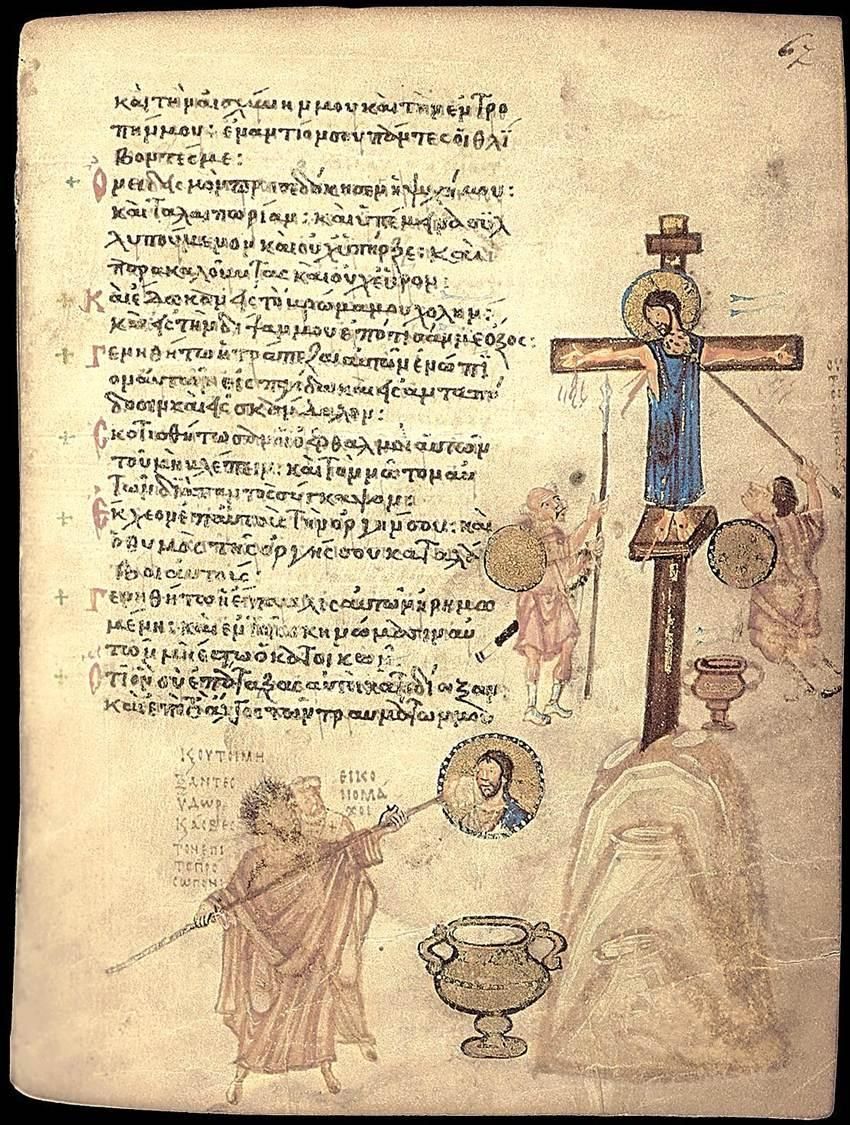 67
καὶ τὴν αἰσχύνην μου καὶ τὴν ἐντρο
πήν μου: ἐναντίον σου πάντες οἱ θλί
βοντές με:
Ὀνειδισμὸν προσεδόκησεν ἡ ψυχή μου:
καὶ ταλαιπωρίαν: καὶ ὑπέμεινα συλ
λυπούμενον καὶ οὐχ ὑπῆρξε: καὶ
παρακαλοῦντας καὶ οὐχ εὗρον:
Καὶ ἔδωκαν εἰς τὸ βρῶμά μου χολήν:
καὶ εἰς τὴν δίψαν μου ἐπότισάν με ὄξος:
Γενηθήτω ἡ τράπεζα αὐτῶν ἐνώπι
ον αὐτῶν εἰς παγίδα καὶ εἰς ἀνταπό
δοσιν καὶ εἰς σκάνδαλον:
Σκοτισθήτωσαν οἱ ὀφθαλμοὶ αὐτῶν
τοῦ μὴ βλέπειν: καὶ τὸν νῶτον αὐ
τῶν διὰ παντὸς σύγκαμψον
Ἔκχεον ἐπ' αὐτοὺς τὴν ὀργήν σου: καὶ
ὁ θυμὸς τῆς ὀργῆς σου καταλά
βοι αὐτούς:
Γενηθήτω ἡ ἔπαυλις αὐτῶν ἠρημω
μένη: καὶ ἐν τοῖς σκηνώμασιν αὐ
τῶν μὴ ἔστω ὁ κατοικῶν:
Ὅτι ὃν σὺ ἐπάταξας αὐτοὶ κατεδίωξαν:
καὶ ἐπὶ τὸ ἄλγος τῶν τραυμάτων μου
Κ ΟΥΤΟΙ ΜΗ
ΞΑΝΤΕΣ
ΥΔΩΡ
ΤΟΝ ΕΠΙ
ΤΟ ΠΡΟ
ΣΩΠΟΝ
ΕΙΚΟ
ΝΟΜΑ
ΧΟΙ